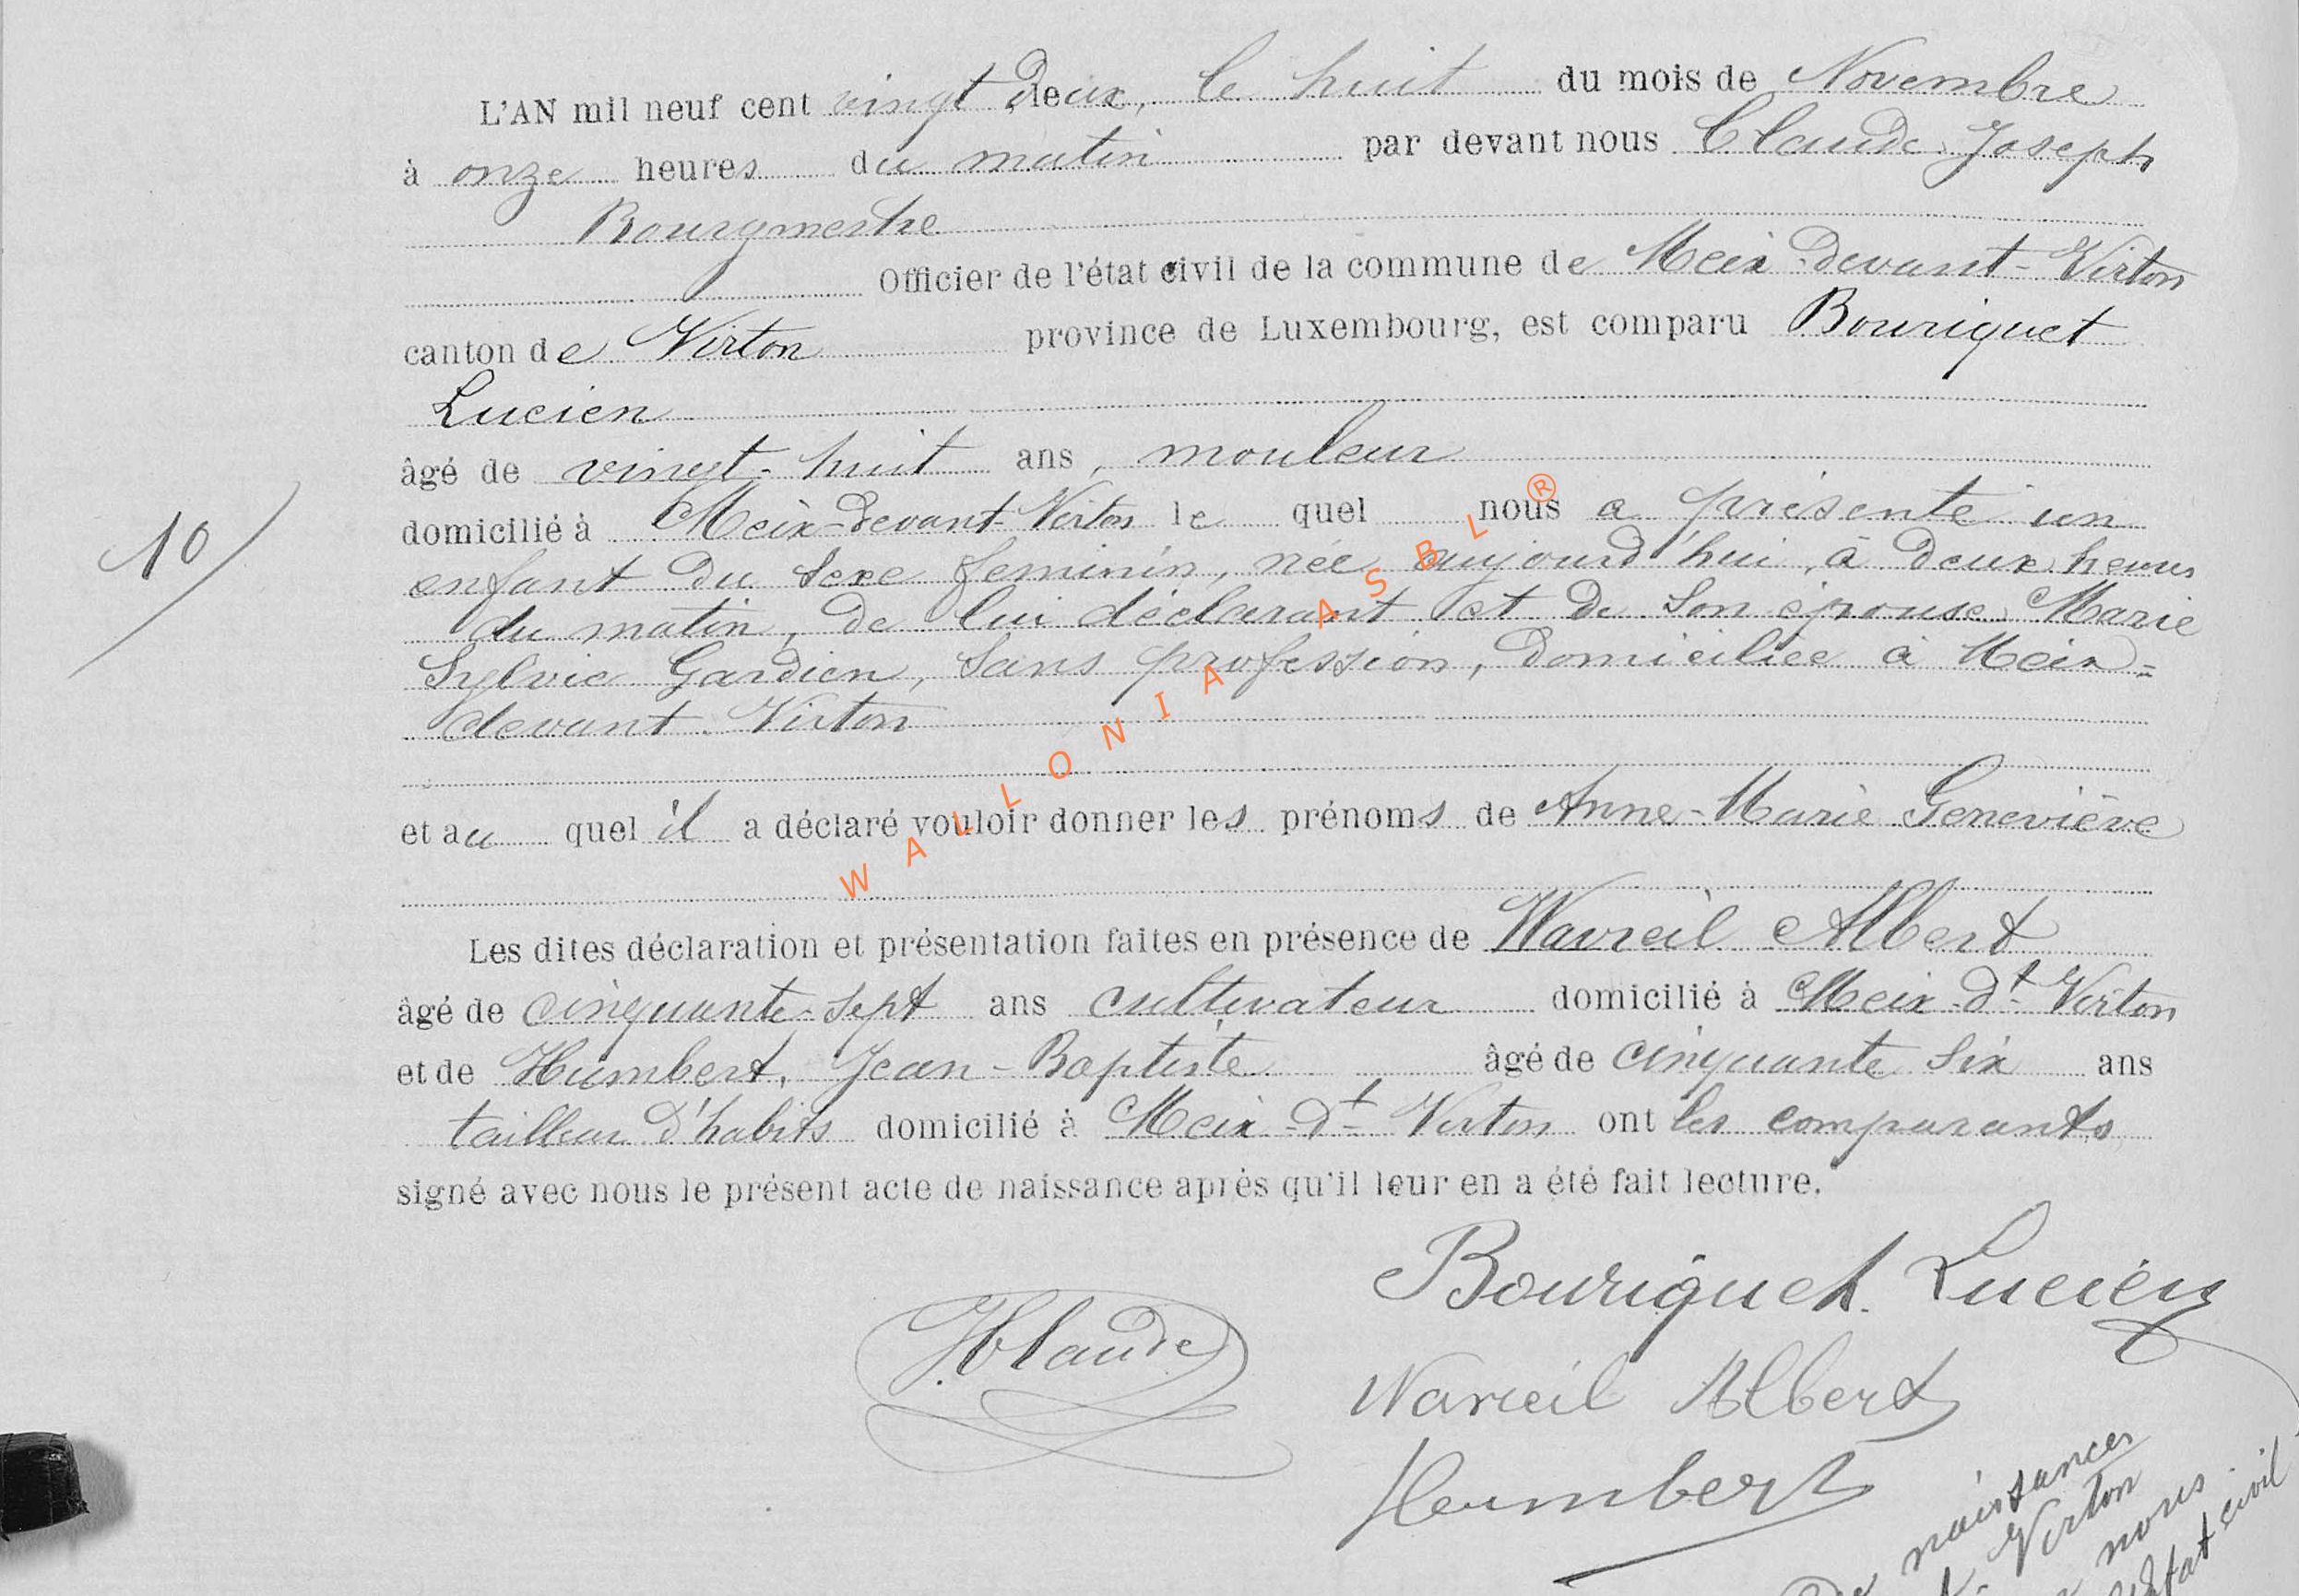 L'AN mil neuf cent vingt deux, le huit du mois de Novembre
à onze heures du matin par devant nous Claude Joseph
Bourgmestre
Officier de l'état civil de la commune de Meix-devant-Virton
canton de Virton province de Luxembourg, est comparu Bouriquet
Lucien
âgé de vingt-huit ans, mouleur
domicilié à Meix-devant-Virton lequel nous a présenté un
10
enfant du sexe feminin, née aujourd'hui, à deux heures
du matin, de lui déclarant et de son épouse Marie
Sylvie Gardien, sans profession, domiciliée à Meix-
devant-Virton
et au quel il a déclaré vouloir donner les prénoms de Anne-Marie Geneviève
WALLONIA ASBL ®
Les dites déclaration et présentation faites en présence de Wavreil Albert
âgé de cinquante-sept ans cultivateur domicilié à Meix-dt-Virton
et de Humbert, Jean-Baptiste âgé de cinquante six ans
tailleur d'habits domicilié à Meix-dt-Virton ont les comparants
signé avec nous le présent acte de naissance après qu'il leur en a été fait lecture.
Bouriquet Lucien
J Claude
Wavreil Albert
Humbert
naissances
Virton
nous
état civil